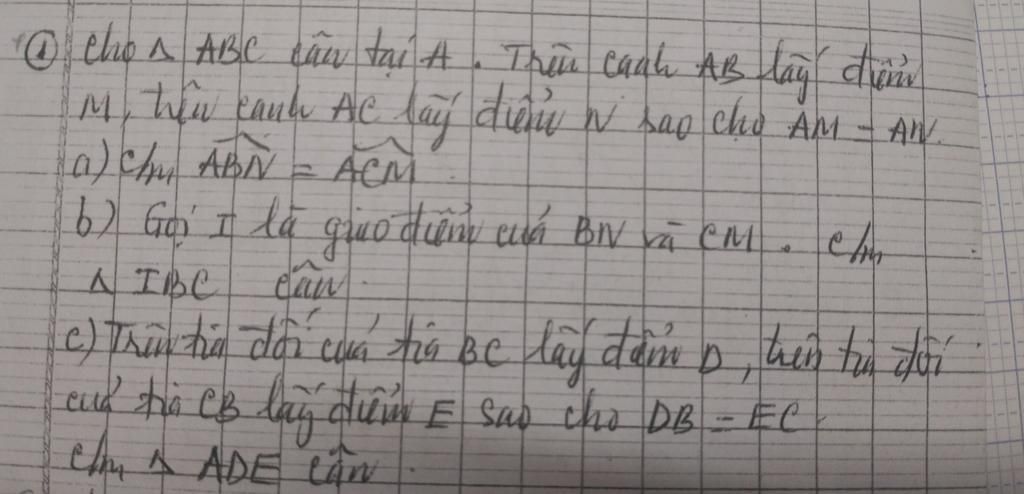 ① Cho Δ ABC cân tại A. Trên cạnh AB lấy điểm
M, trên cạnh AC lấy điểm N sao cho AM = AN.
a) C/m ABN = ACM
b) Gọi I là giao điểm của BN và CM. C/m
Δ IBC cân.
c) Trên tia đối của tia BC lấy điểm D, trên tia đối
của tia CB lấy điểm E sao cho DB = EC.
C/m Δ ADE cân.